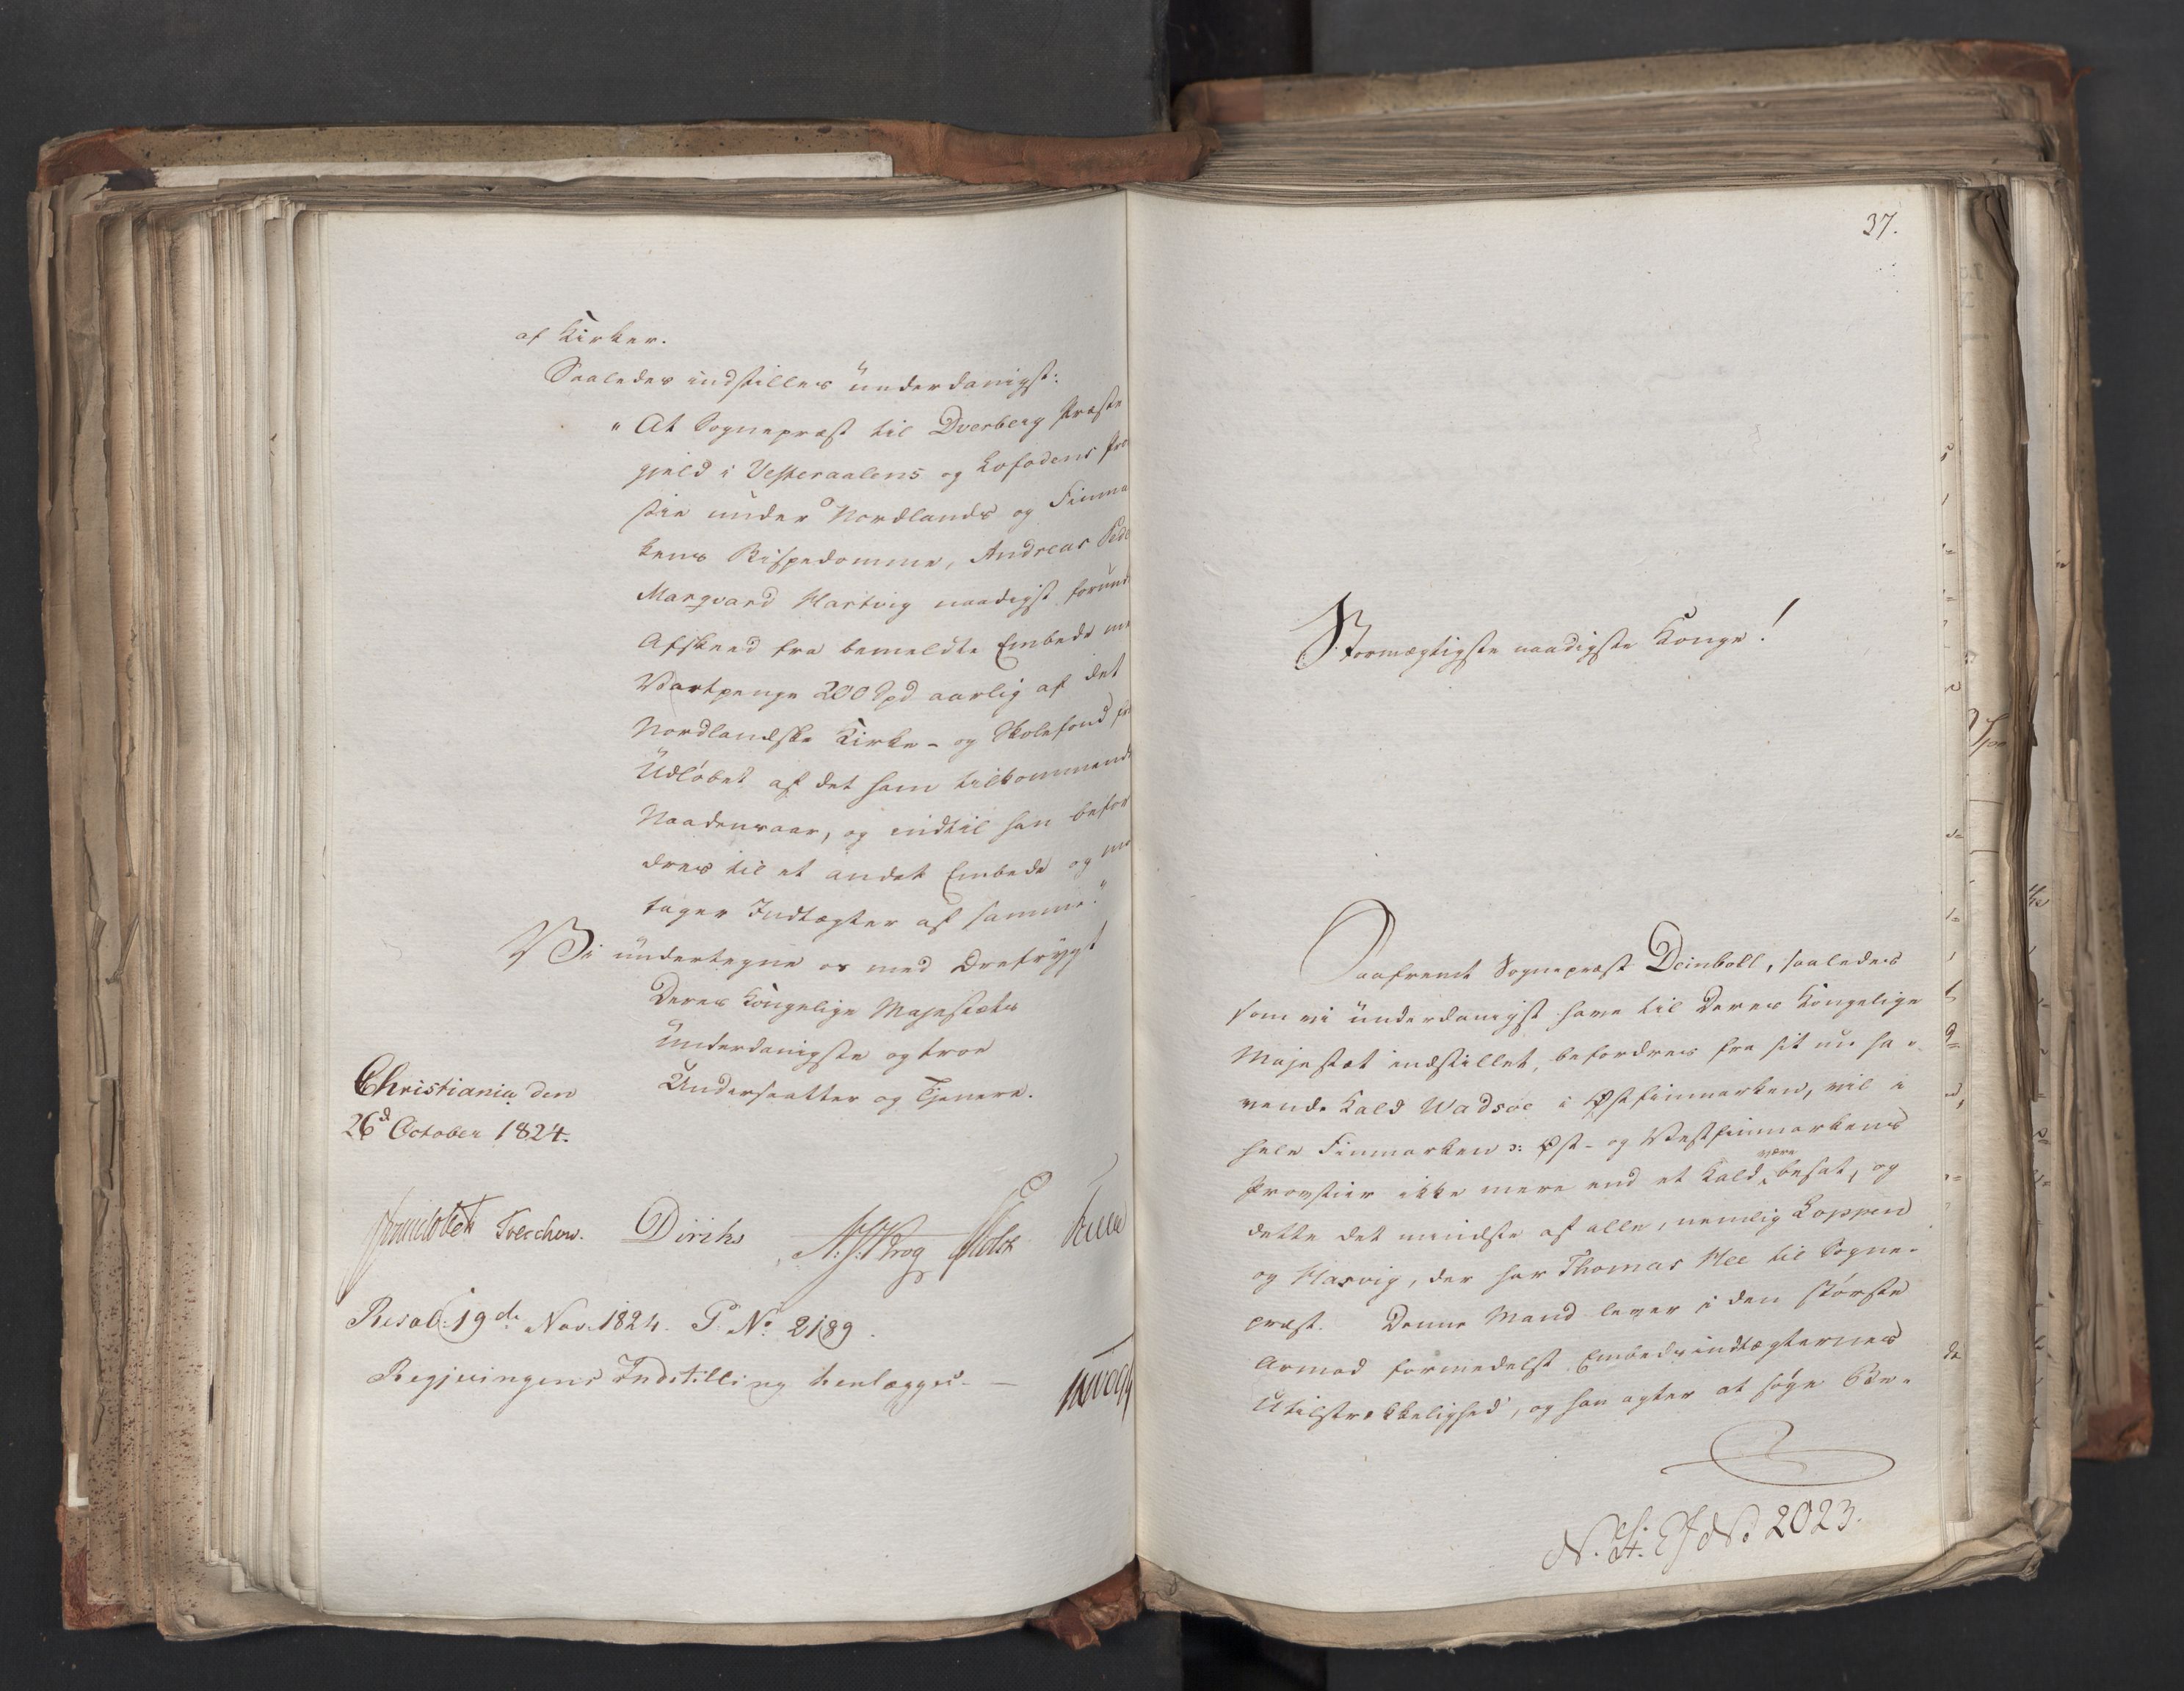 af Kirker.
Saaledes indstilles underdanigst:
"At Sognepræst til Dverberg Præste
gjeld i Vesteraalens og Lofodens Pro
stie under Nordlands og Finma
kens Bispedømme, Andreas Pede
Marqvard Hartvig naadigst forund
Afskeed fra bemeldte Embede me
Vartpenge 200 Spd aarlig af det
Nordlandske Kirke- og Skolefond fra
Udløbet af det ham tilkommende
Naadensaar, og indtil han befor
dres til et andet Embede og mod
tager Indtægter af samme."
Vi undertegne os med Ærefrygt
Deres Kongelige Majestæts
underdanigste og troe
Undersaatter og Tjenere.
Christiania den
26d October 1824.
Treschow. Diriks
Resol: 19de Nov. 1824. P. No 2189.
Regjeringens Indstilling henlægges. —
37.
Stormægtigste naadigste Konge!
Saafremt Sognepræst Deinboll, saaledes
som vi underdanigst have til Deres Kongelige
Majestæt indstillet, befordres fra sit nu ha-
vende Kald Wadsøe i Østfinmarken, vil i
hele Finmarken ɔ: Øst- og Vestfinmarkens
Provstier ikke mere end et Kald være besat, og
dette det mindste af alle, nemlig Loppen
og Hasvig, der har Thomas Hee til Sogne-
præst. Denne Mand lever i den største
Armod formedelst Embedsindtægternes
Utilstrækkelighed, og han agter at søge Be-
2023.